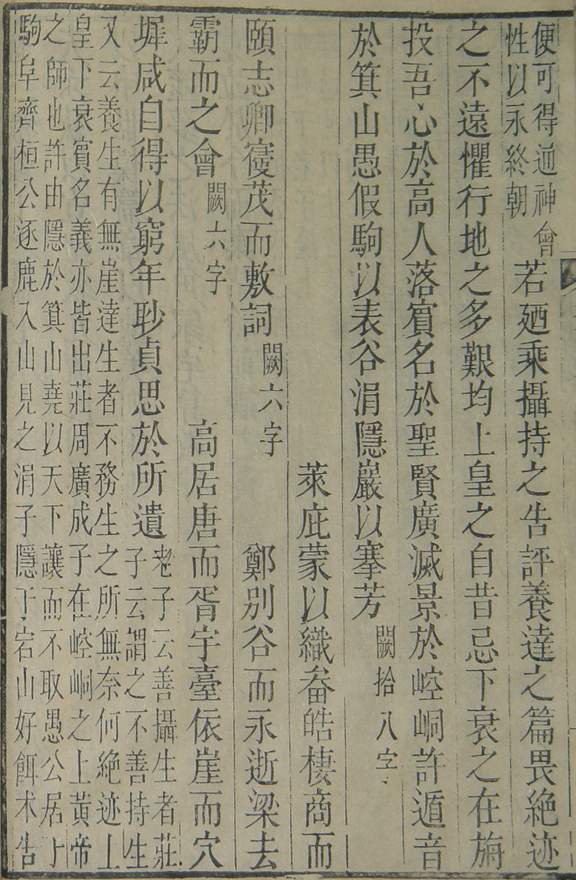 便可得通神會
性以永終朝
若廼乘攝持之告評養達之篇畏絕迹
之不遠懼行地之多艱均上皇之自昔忌下衰之在旃
投吾心於高人落賓名於聖賢廣滅景於崆峒許遁音
於箕山愚假駒以表谷涓隱巖以搴芳闕拾八字
萊庇蒙以織畚皓棲商而
頤志卿寑茂而敷詞闕六字鄭別谷而永逝梁去
霸而之會闕六字高居唐而胥宇臺依崖而穴
墀咸自得以窮年眇貞思於所遺
老子云善攝生者莊
子云謂之不善持生
又云養生有無崖達生者不務生之所無奈何絕迹上
皇下衰賓名義亦皆出莊周廣成子在崆峒之上黃帝
之師也許由隱於箕山堯以天下讓而不取愚公居于
駒阜齊桓公逐鹿入山見之涓子隱于宕山好餌朮告